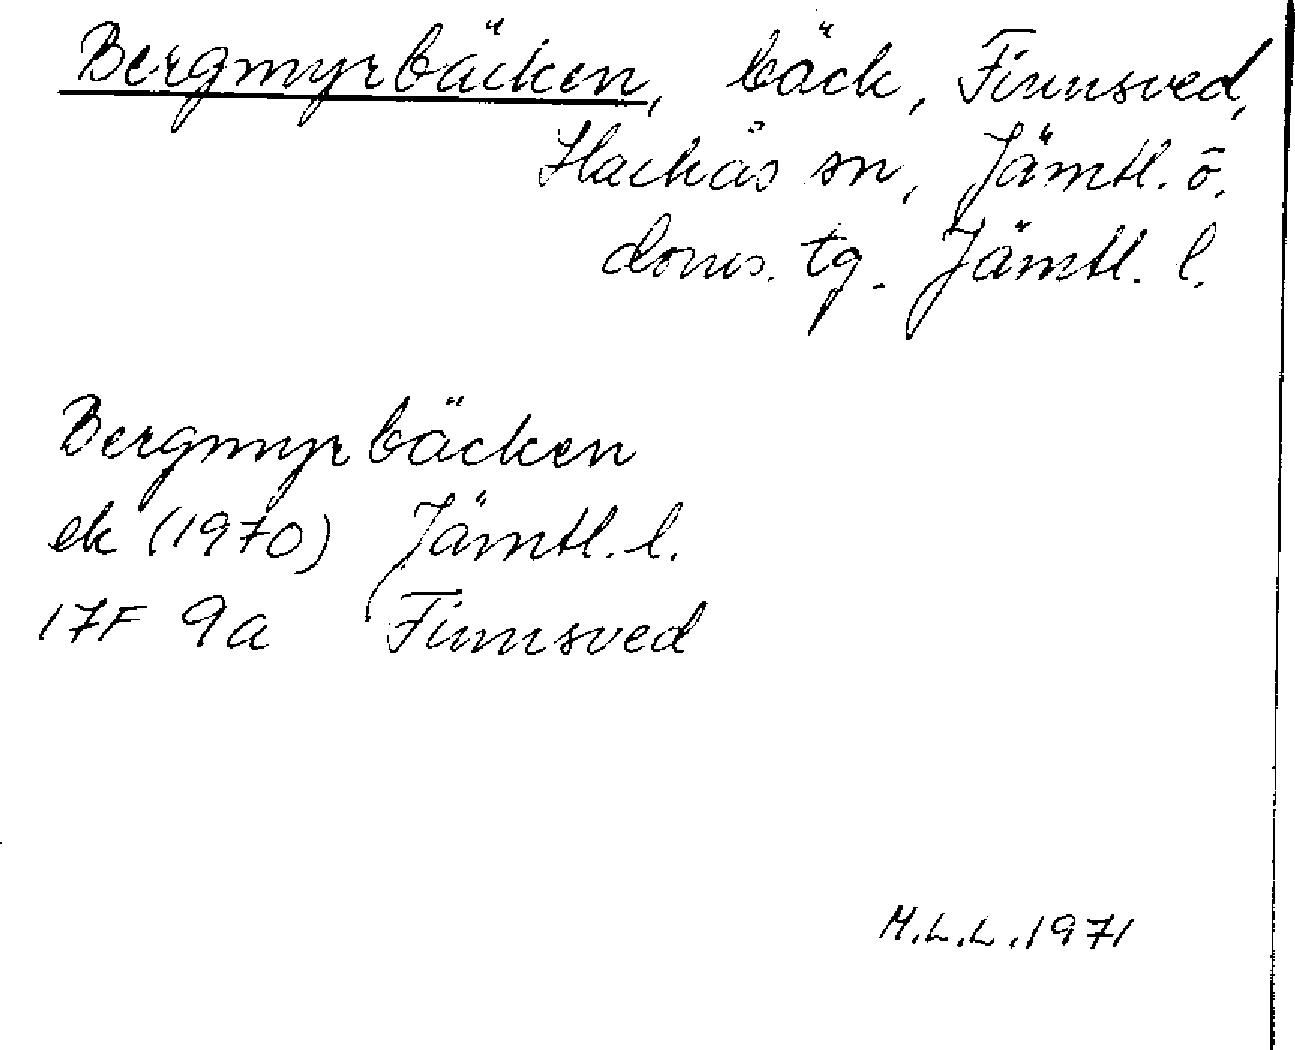 Bergmyrbäcken, bäck, Finnsved,
Hackås sn, Jämtl. ö.
doms. tg. Jämtl. l.
Bergmyrbäcken
ek (1970) Jämtl. l.
17F 9a Finnsved
M.L.L. 1971